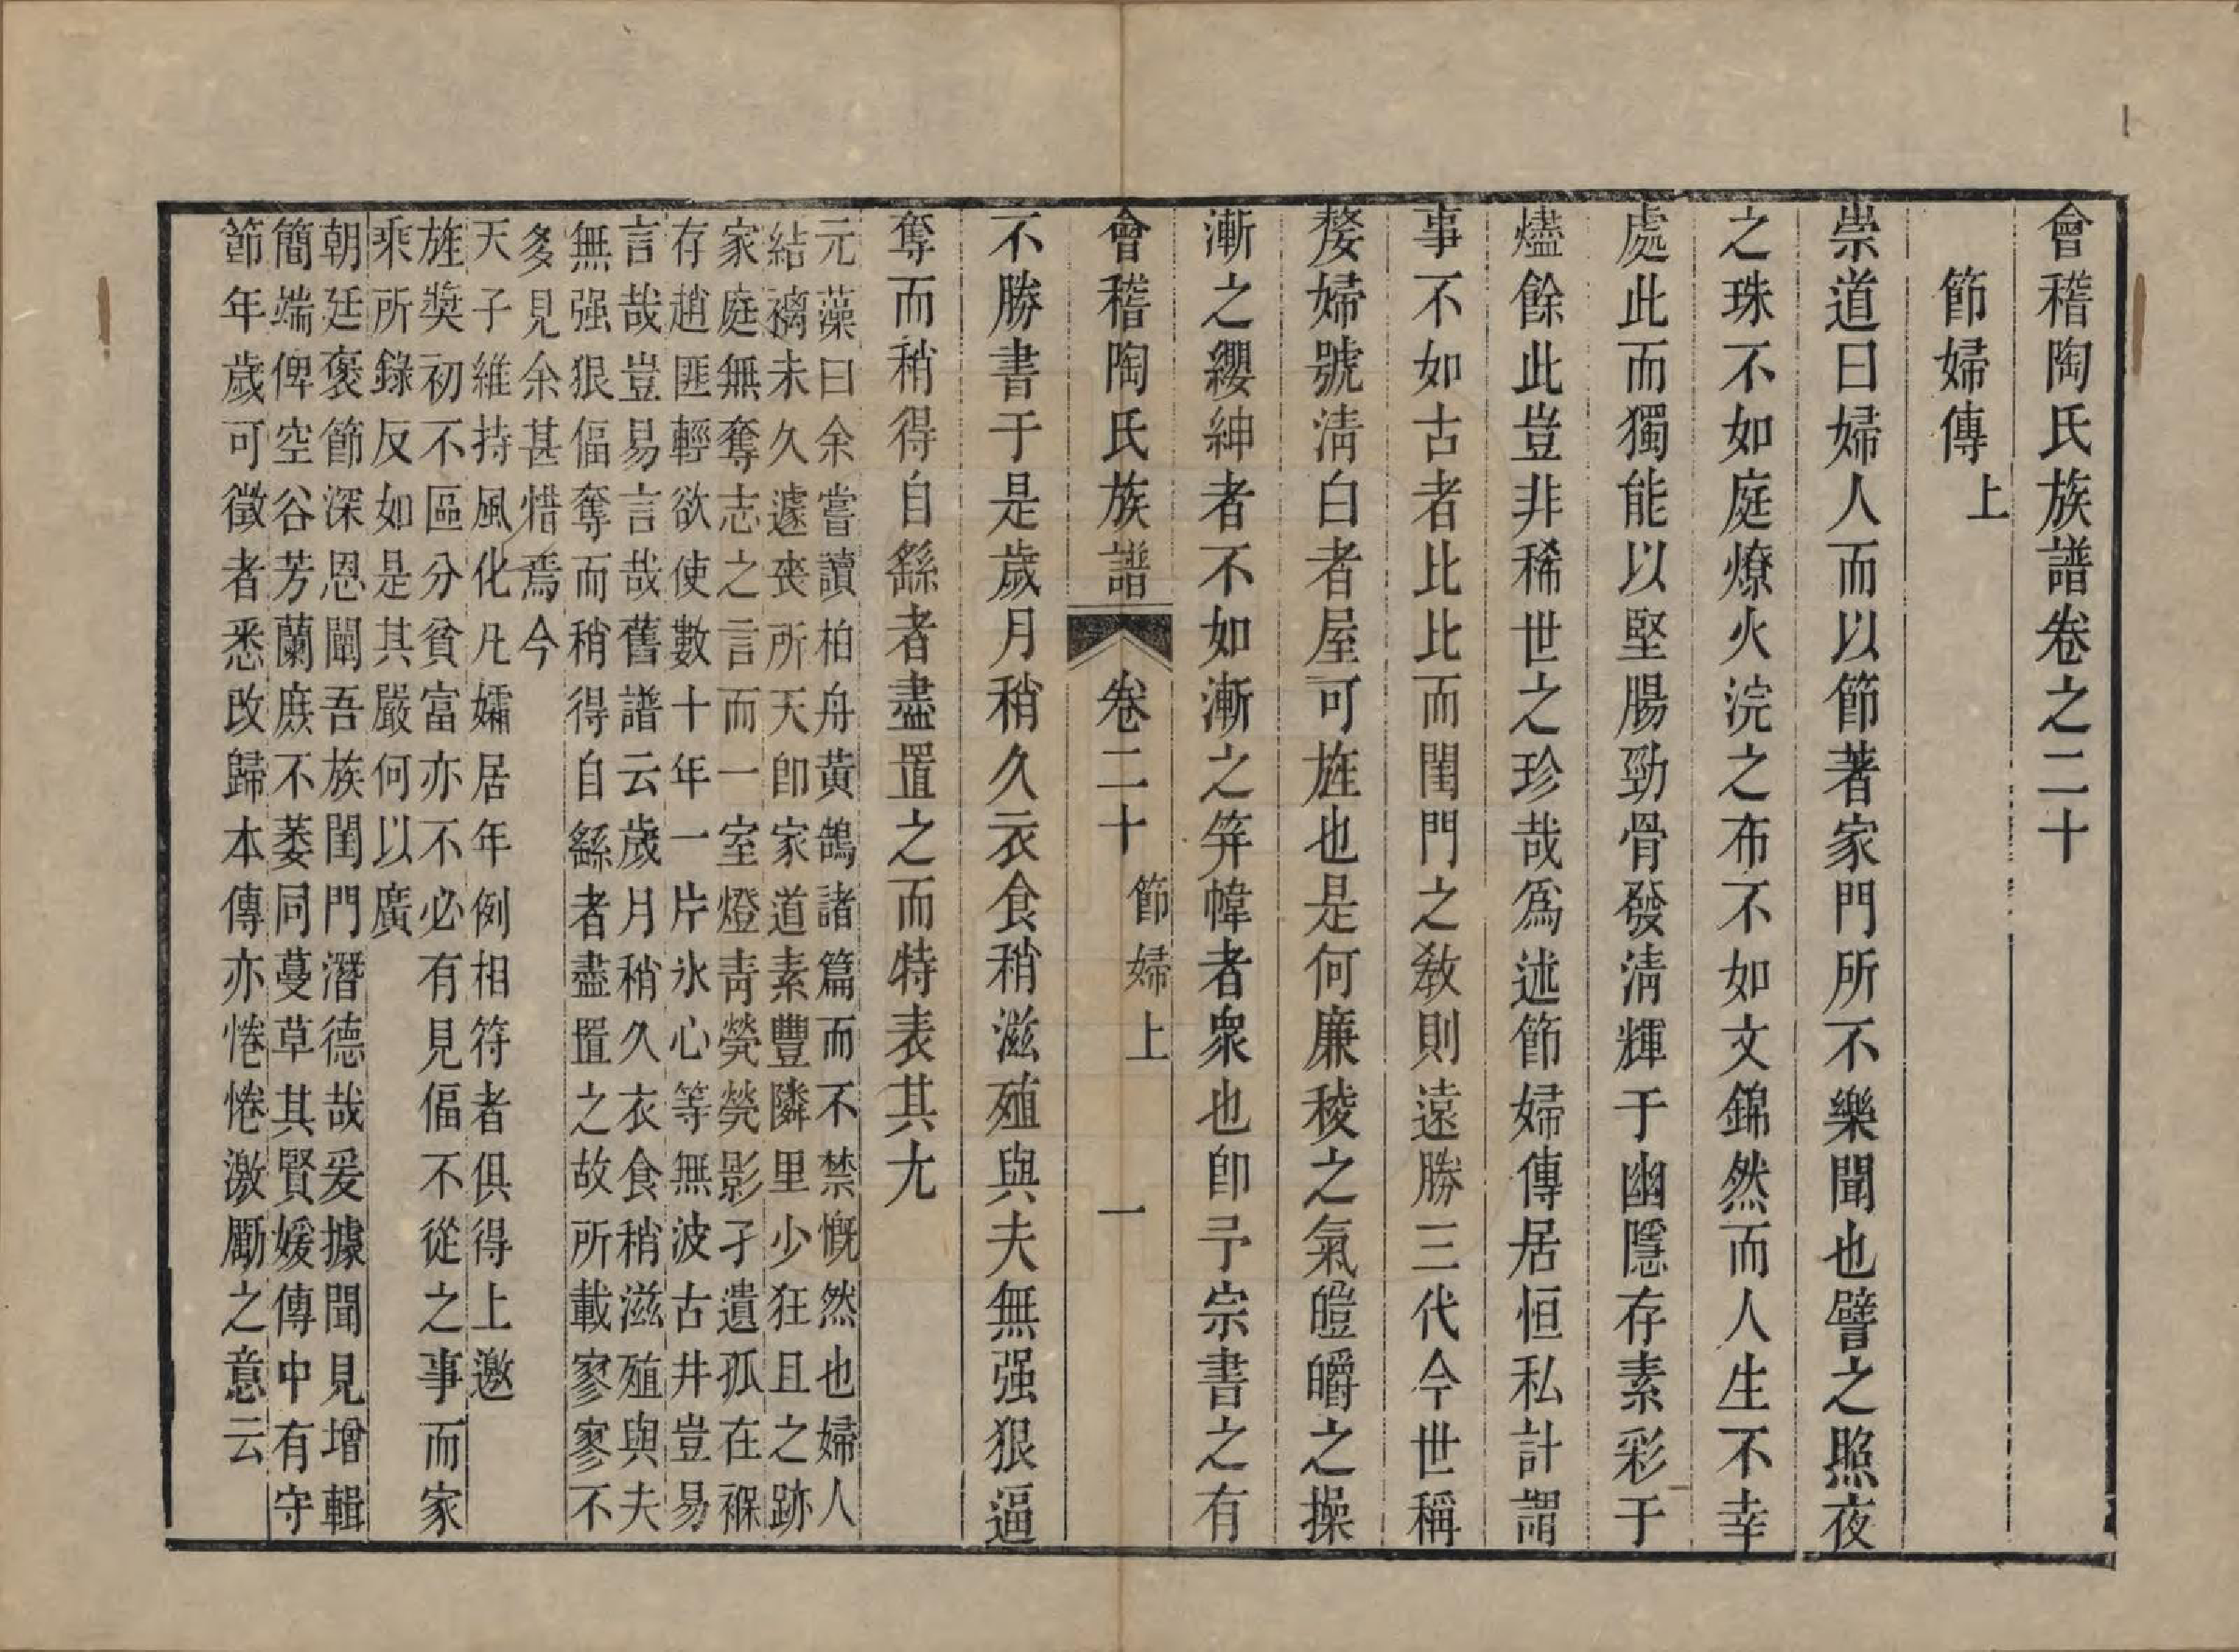 會稽陶氏族譜卷之二十
節婦傳上
崇道曰婦人而以節著家門所不樂聞也譬之照夜
之珠不如庭燎火浣之布不如文錦然而人生不幸
處此而獨能以堅腸勁骨發淸輝于幽隱存素彩于
燼餘此豈非稀世之珍哉爲述節婦傳居恒私計謂
事不如古者比比而閨門之敎則遠勝三代今世稱
嫠婦號淸白者屋可旌也是何廉稜之氣皚皭之操
漸之纓紳者不如漸之筓幃者衆也卽予宗書之有
會稽陶氏族譜 卷二十 節婦上 一
不勝書于是歲月稍久衣食稍滋殖與夫無强狠逼
奪而稍得自繇者盡置之而特表其尤
元藻曰余嘗讀柏舟黃鵠諸篇而不禁慨然也婦人
結褵未久遽喪所天卽家道素豐隣里少狂且之跡
家庭無奪志之言而一室燈靑煢煢影孑遺孤在褓
存趙匪輕欲使數十年一片氷心等無波古井豈易
言哉豈易言哉舊譜云歲月稍久衣食稍滋殖與夫
無强狠偪奪而稍得自繇者盡置之故所載寥寥不
多見余甚惜焉今
天子維持風化凡孀居年例相符者俱得上邀
旌奬初不區分貧富亦不必有見偪不從之事而家
乘所錄反如是其嚴何以廣
朝廷褒節深恩闡吾族閨門潛德哉爰據聞見增輯
簡端俾空谷芳蘭庶不萎同蔓草其賢媛傳中有守
節年歲可徵者悉改歸本傳亦惓惓激勵之意云